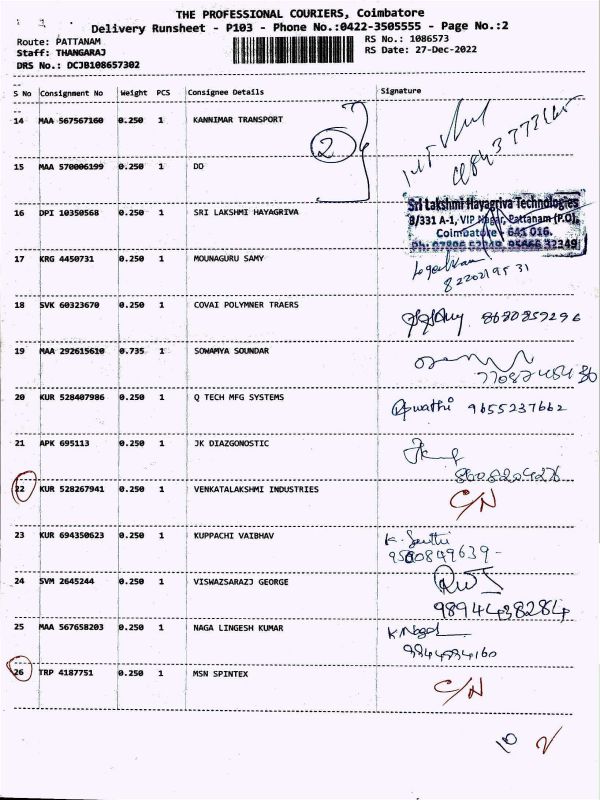 THE PROFESSIONAL COURIERS, Coimbatore
Delivery Runsheet - P103 - Phone No.:0422-3505555 - Page No.:2
Route: PATTANAM
RS No.: 1086573
Staff: THANGARAJ
RS Date: 27-Dec-2022
DRS No.: DCJB108657302
S No Consignment No Weight PCS Consignee Details Signature
14 MAA 567567160 0.250 1 KANNIMAR TRANSPORT
2
15 MAA 570006199 0.250 1 DO
Sri Lakshmi Hayagriva Technologies
8/331 A-1, VIP Nagar, Pattanam (P.O),
Coimbatore - 641 016.
16 DPI 10350568 0.250 1 SRI LAKSHMI HAYAGRIVA
17 KRG 4450731 0.250 1 MOUNAGURU SAMY
8220219531
18 SVK 60323670 0.250 1 COVAI POLYMNER TRAERS 8680859296
19 MAA 292615610 0.735 1 SOWAMYA SOUNDAR
20 KUR 528407986 0.250 1 Q TECH MFG SYSTEMS 9655237662
21 APK 695113 0.250 1 JK DIAZGONOSTIC
8608204276
22 KUR 528267941 0.250 1 VENKATALAKSHMI INDUSTRIES C/N
23 KUR 694350623 0.250 1 KUPPACHI VAIBHAV
9500849639-
24 SVM 2645244 0.250 1 VISWAZSARAZJ GEORGE
9894438284
25 MAA 567658203 0.250 1 NAGA LINGESH KUMAR
26 TRP 4187751 0.250 1 MSN SPINTEX C/N
10 2